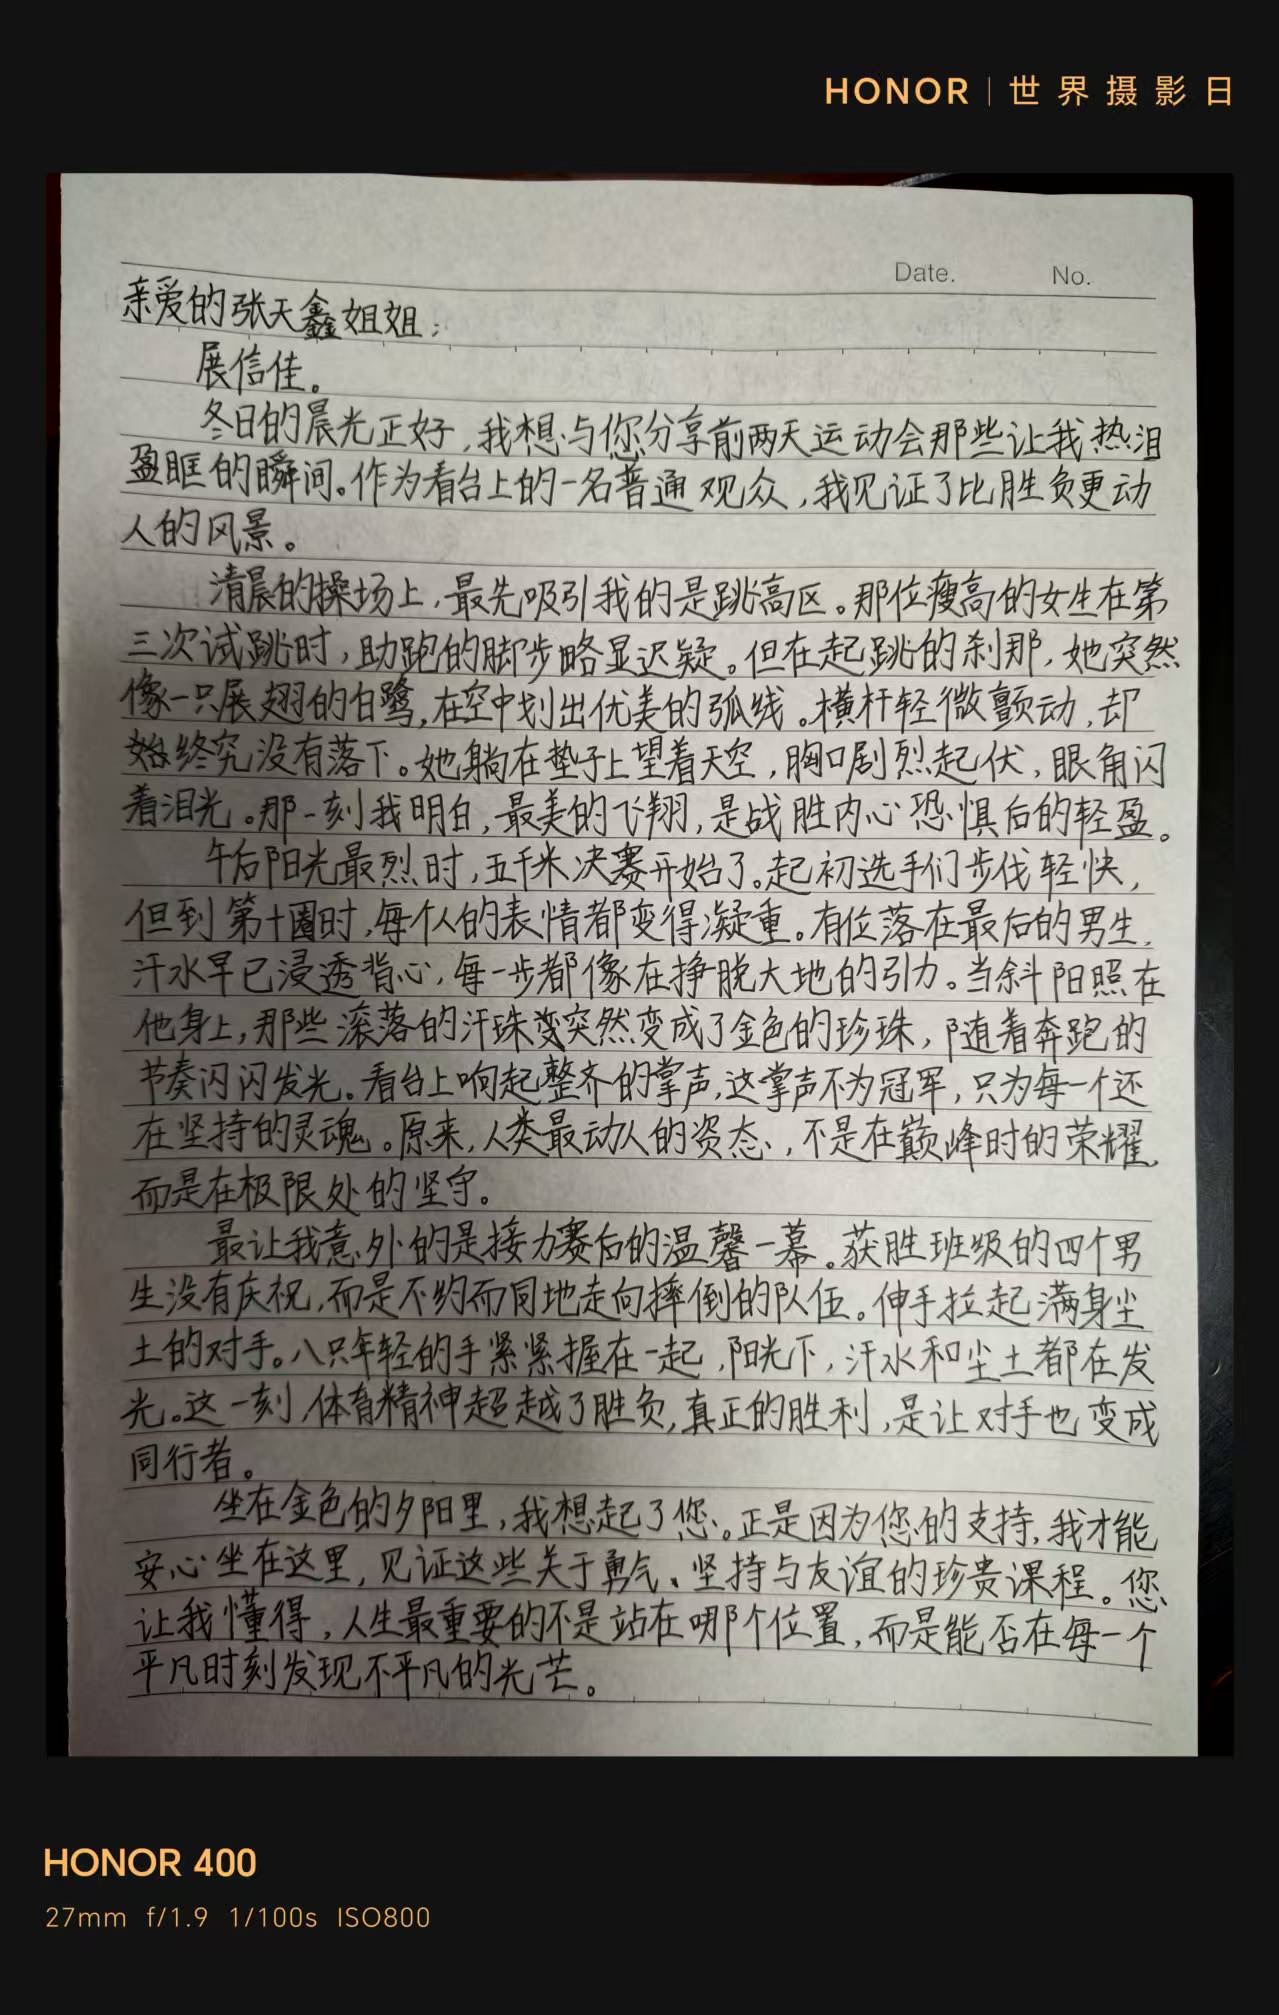 HONOR | 世界摄影日
Date. No.
亲爱的张天鑫姐姐:
展信佳。
冬日的晨光正好,我想与您分享前两天运动会那些让我热泪
盈眶的瞬间。作为看台上的一名普通观众,我见证了比胜负更动
人的风景。
清晨的操场上,最先吸引我的是跳高区。那位瘦高的女生在第
三次试跳时,助跑的脚步略显迟疑。但在起跳的刹那,她突然
像一只展翅的白鹭,在空中划出优美的弧线。横杆轻微颤动,却
始终究没有落下。她躺在垫子上望着天空,胸口剧烈起伏,眼角闪
着泪光。那一刻我明白,最美的飞翔,是战胜内心恐惧后的轻盈。
午后阳光最烈时,五千米决赛开始了。起初选手们步伐轻快,
但到第十圈时,每个人的表情都变得凝重。有位落在最后的男生,
汗水早已浸透背心,每一步都像在挣脱大地的引力。当斜阳照在
他身上,那些滚落的汗珠突然变成了金色的珍珠,随着奔跑的
节奏闪闪发光。看台上响起整齐的掌声,这掌声不为冠军,只为每一个还
在坚持的灵魂。原来,人类最动人的姿态,不是在巅峰时的荣耀,
而是在极限处的坚守。
最让我意外的是接力赛后的温馨一幕。获胜班级的四个男
生没有庆祝,而是不约而同地走向摔倒的队伍。伸手拉起满身尘
土的对手。八只年轻的手紧紧握在一起,阳光下,汗水和尘土都在发
光。这一刻,体育精神超越了胜负,真正的胜利,是让对手也变成
同行者。
坐在金色的夕阳里,我想起了您。正是因为您的支持,我才能
安心坐在这里,见证这些关于勇气、坚持与友谊的珍贵课程。您
让我懂得,人生最重要的不是站在哪个位置,而是能否在每一个
平凡时刻发现不平凡的光芒。
HONOR 400
27mm f/1.9 1/100s ISO800